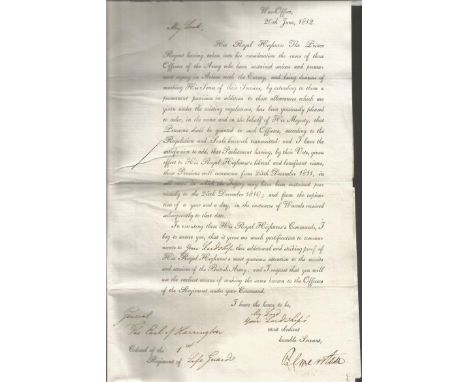 War Office,
20th June, 1812.
My Lord
His Royal Highness The Prince
Regent having taken into his consideration the cases of those
Officers of the Army who have sustained serious and perma-
nent injury in Action with the Enemy, and being desirous of
marking His Sense of their Services, by extending to them a
permanent provision in addition to those allowances which are
given under the existing regulations, has been graciously pleased
to order, in the name and on the behalf of His Majesty, that
Pensions shall be granted to such Officers, according to the
Regulation and Scale herewith transmitted; and I have the
satisfaction to add, that Parliament having, by their Vote, given
effect to His Royal Highness's liberal and beneficent views,
these Pensions will commence from 25th December 1811, in
all cases in which the Injury may have been sustained pre-
viously to the 25th December 1810; and from the expira-
tion of a year and a day, in the instances of Wounds received
subsequently to that date.
In executing thus His Royal Highness's Commands, I
beg to assure you, that it gives me much gratification to commu-
nicate to Your Lordship this additional and striking proof of
His Royal Highness's most gracious attention to the merits
and services of the British Army; and I request that you will
use the earliest means of making the same known to the Officers
of the Regiment under your Command.
I have the honor to be,
My Lord
Your Lordship's
most obedient
humble Servant,
General
The Earl of Harrington
Colonel of the 1st
Regiment of Life Guards
Palmerston